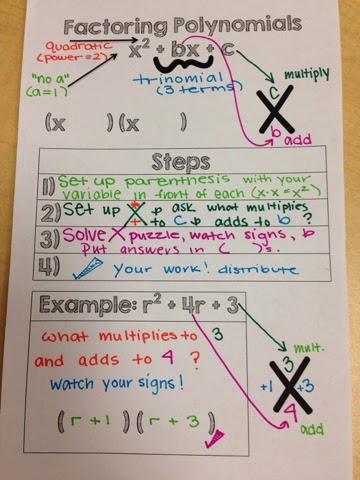 Factoring Polynomials
quadratic
(power=2)
x² + bx + c
"no a"
(a=1)
trinomial
(3 terms)
multiply
c
b
add
(x )(x )
Steps
1) Set up parenthesis with your
variable in front of each (x·x=x²)
2) Set up X & ask what multiplies
to c & adds to b ?
3) Solve X puzzle, watch signs, &
Put answers in ( )'s.
4) ✓ your work! distribute
Example: r² + 4r + 3
what multiplies to 3
and adds to 4 ?
watch your signs!
(r + 1)(r + 3)
mult.
3
+1 +3
4
add